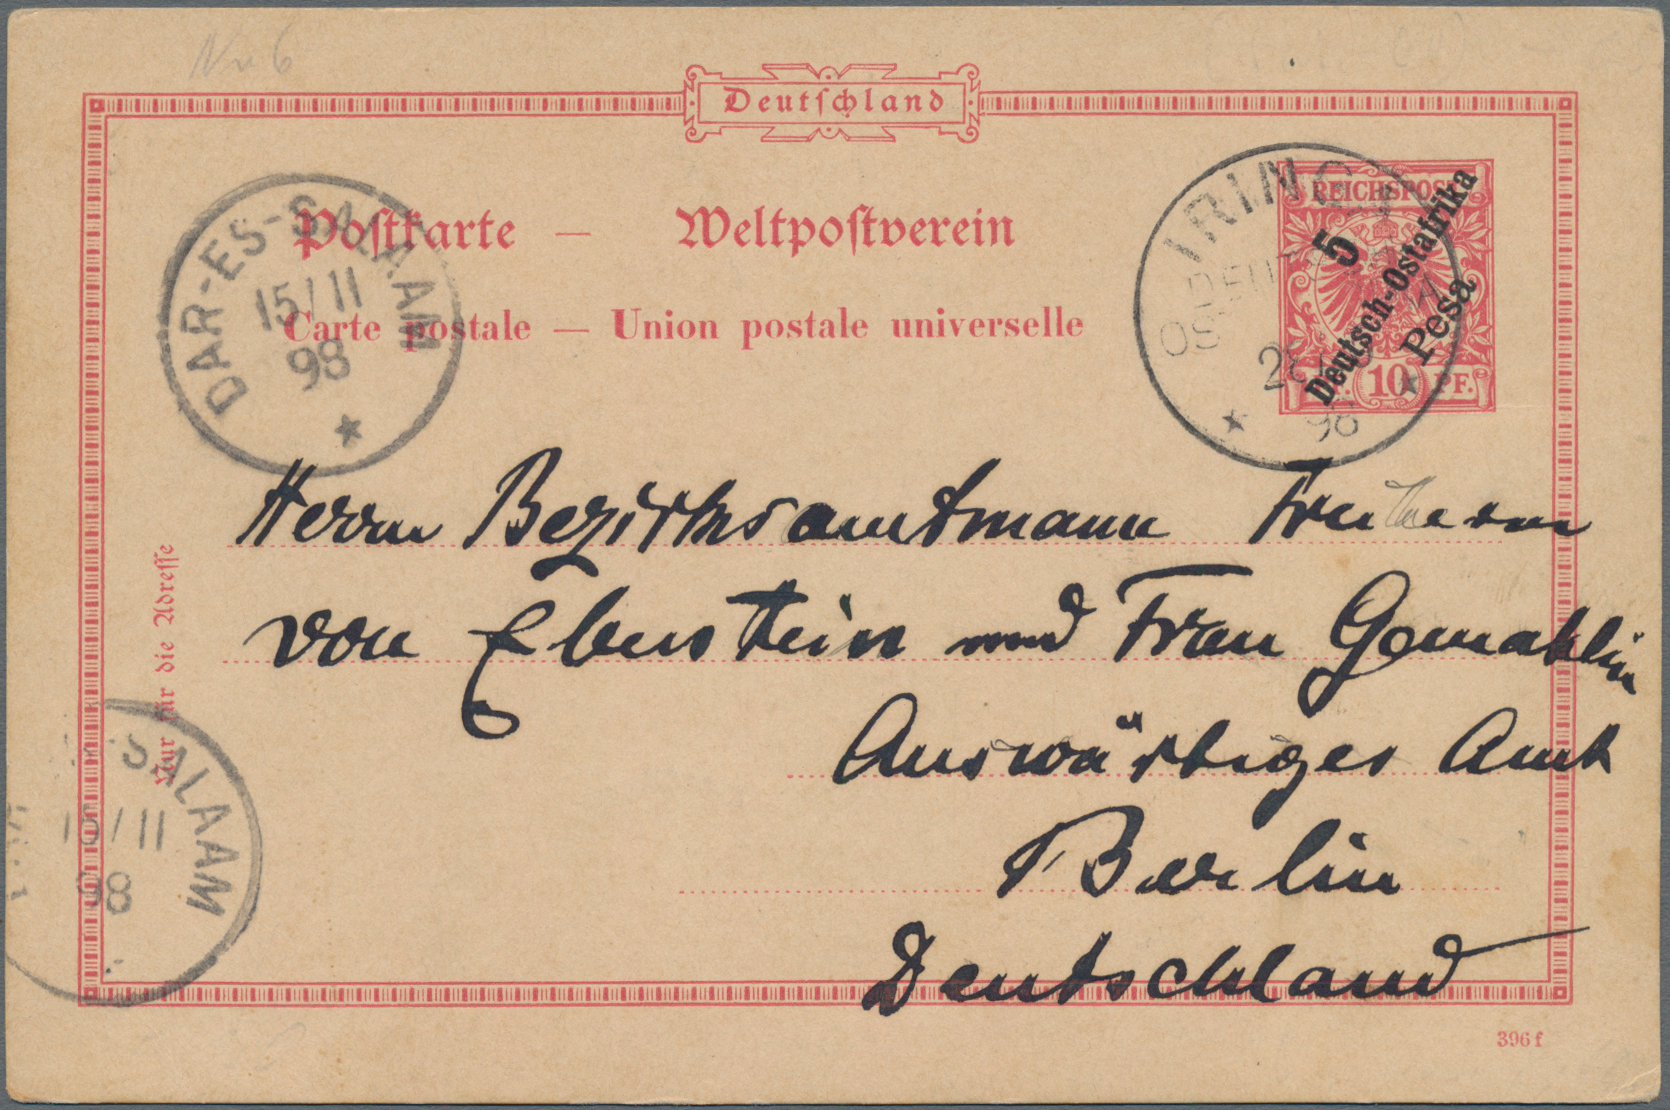 Deutschland
Postkarte — Weltpostverein
Carte postale — Union postale universelle
DAR-ES-SALAAM
15/11
98
IRINGA
DEUTSCH
OST
98
REICHSPOST
10 PF.
5
Deutsch-Ostafrika
Pesa
Herrn Bezirksamtmann Freiherrn
von Eberstein und Frau Gemahlin
Auswärtiges Amt
Berlin
Deutschland
Nur für die Adresse
SALAAM
15/11
98
396 f